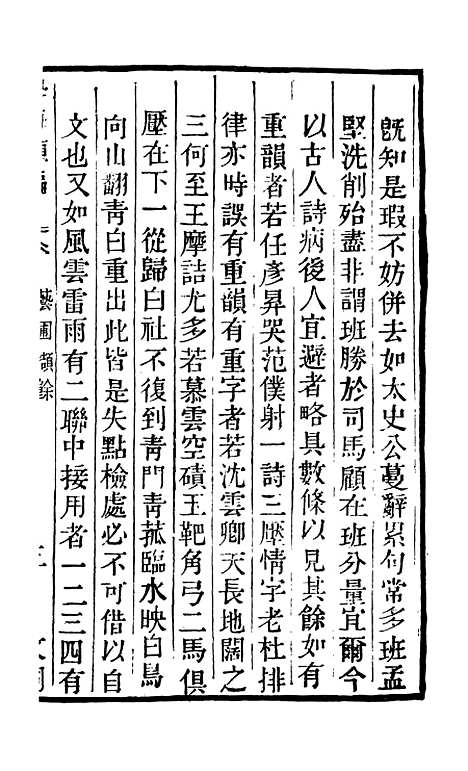 既知是瑕不妨併去如太史公蔓辭累句常多班孟
堅洗削殆盡非謂班勝於司馬顧在班分量宜爾今
以古人詩病後人宜避者略具數條以見其餘如有
重韻者若任彥昇哭范僕射一詩三壓情字老杜排
律亦時誤有重韻有重字者若沈雲卿天長地闊之
三何至王摩詰尤多若慕雲空磧玉靶角弓二馬俱
壓在下一從歸白社不復到青門青菰臨水映白鳥
向山翻青白重出此皆是失點檢處必不可借以自
文也又如風雲雷雨有二聯中接用者一二三四有
藝圃擷餘